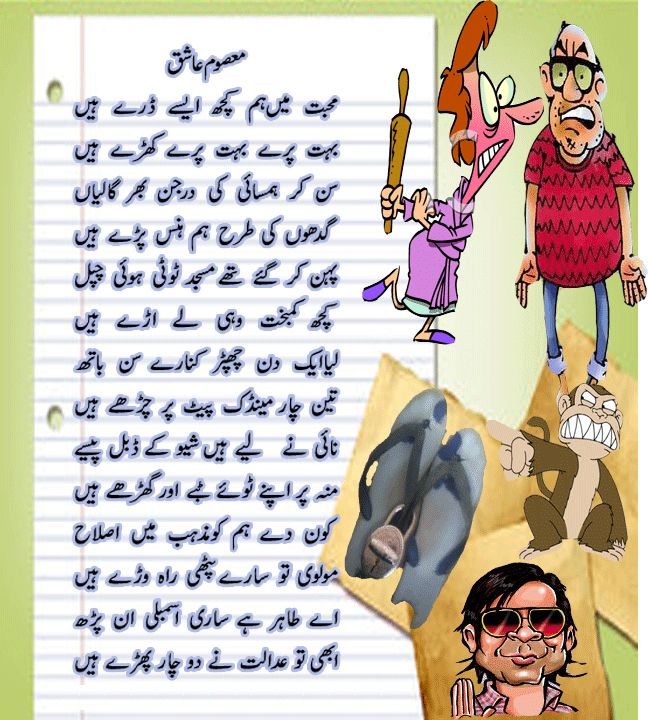 معصوم عاشق
محبت میں ہم کچھ ایسے ڈرے ہیں
بہت پرے بہت پرے کھڑے ہیں
سن کر ہمسائی کی درجن بھر گالیاں
گدھوں کی طرح ہم ہنس پڑے ہیں
پہن کر گئے تھے مسجد ٹوٹی ہوئی چپل
کچھ کمبخت وہی لے اڑے ہیں
لیا ایک دن چھپڑ کنارے سن باتھ
تین چار مینڈک پیٹ پر چڑھے ہیں
نائی نے لیے ہیں شیو کے ڈبل پیسے
منہ پر اپنے ٹوئے ٹبے اور گھڑھے ہیں
کون دے ہم کو مذہب میں اصلاح
مولوی تو سارے پٹھی راہ وڑے ہیں
اے طاہر ہے ساری اسمبلی ان پڑھ
ابھی تو عدالت نے دو چار پھڑے ہیں